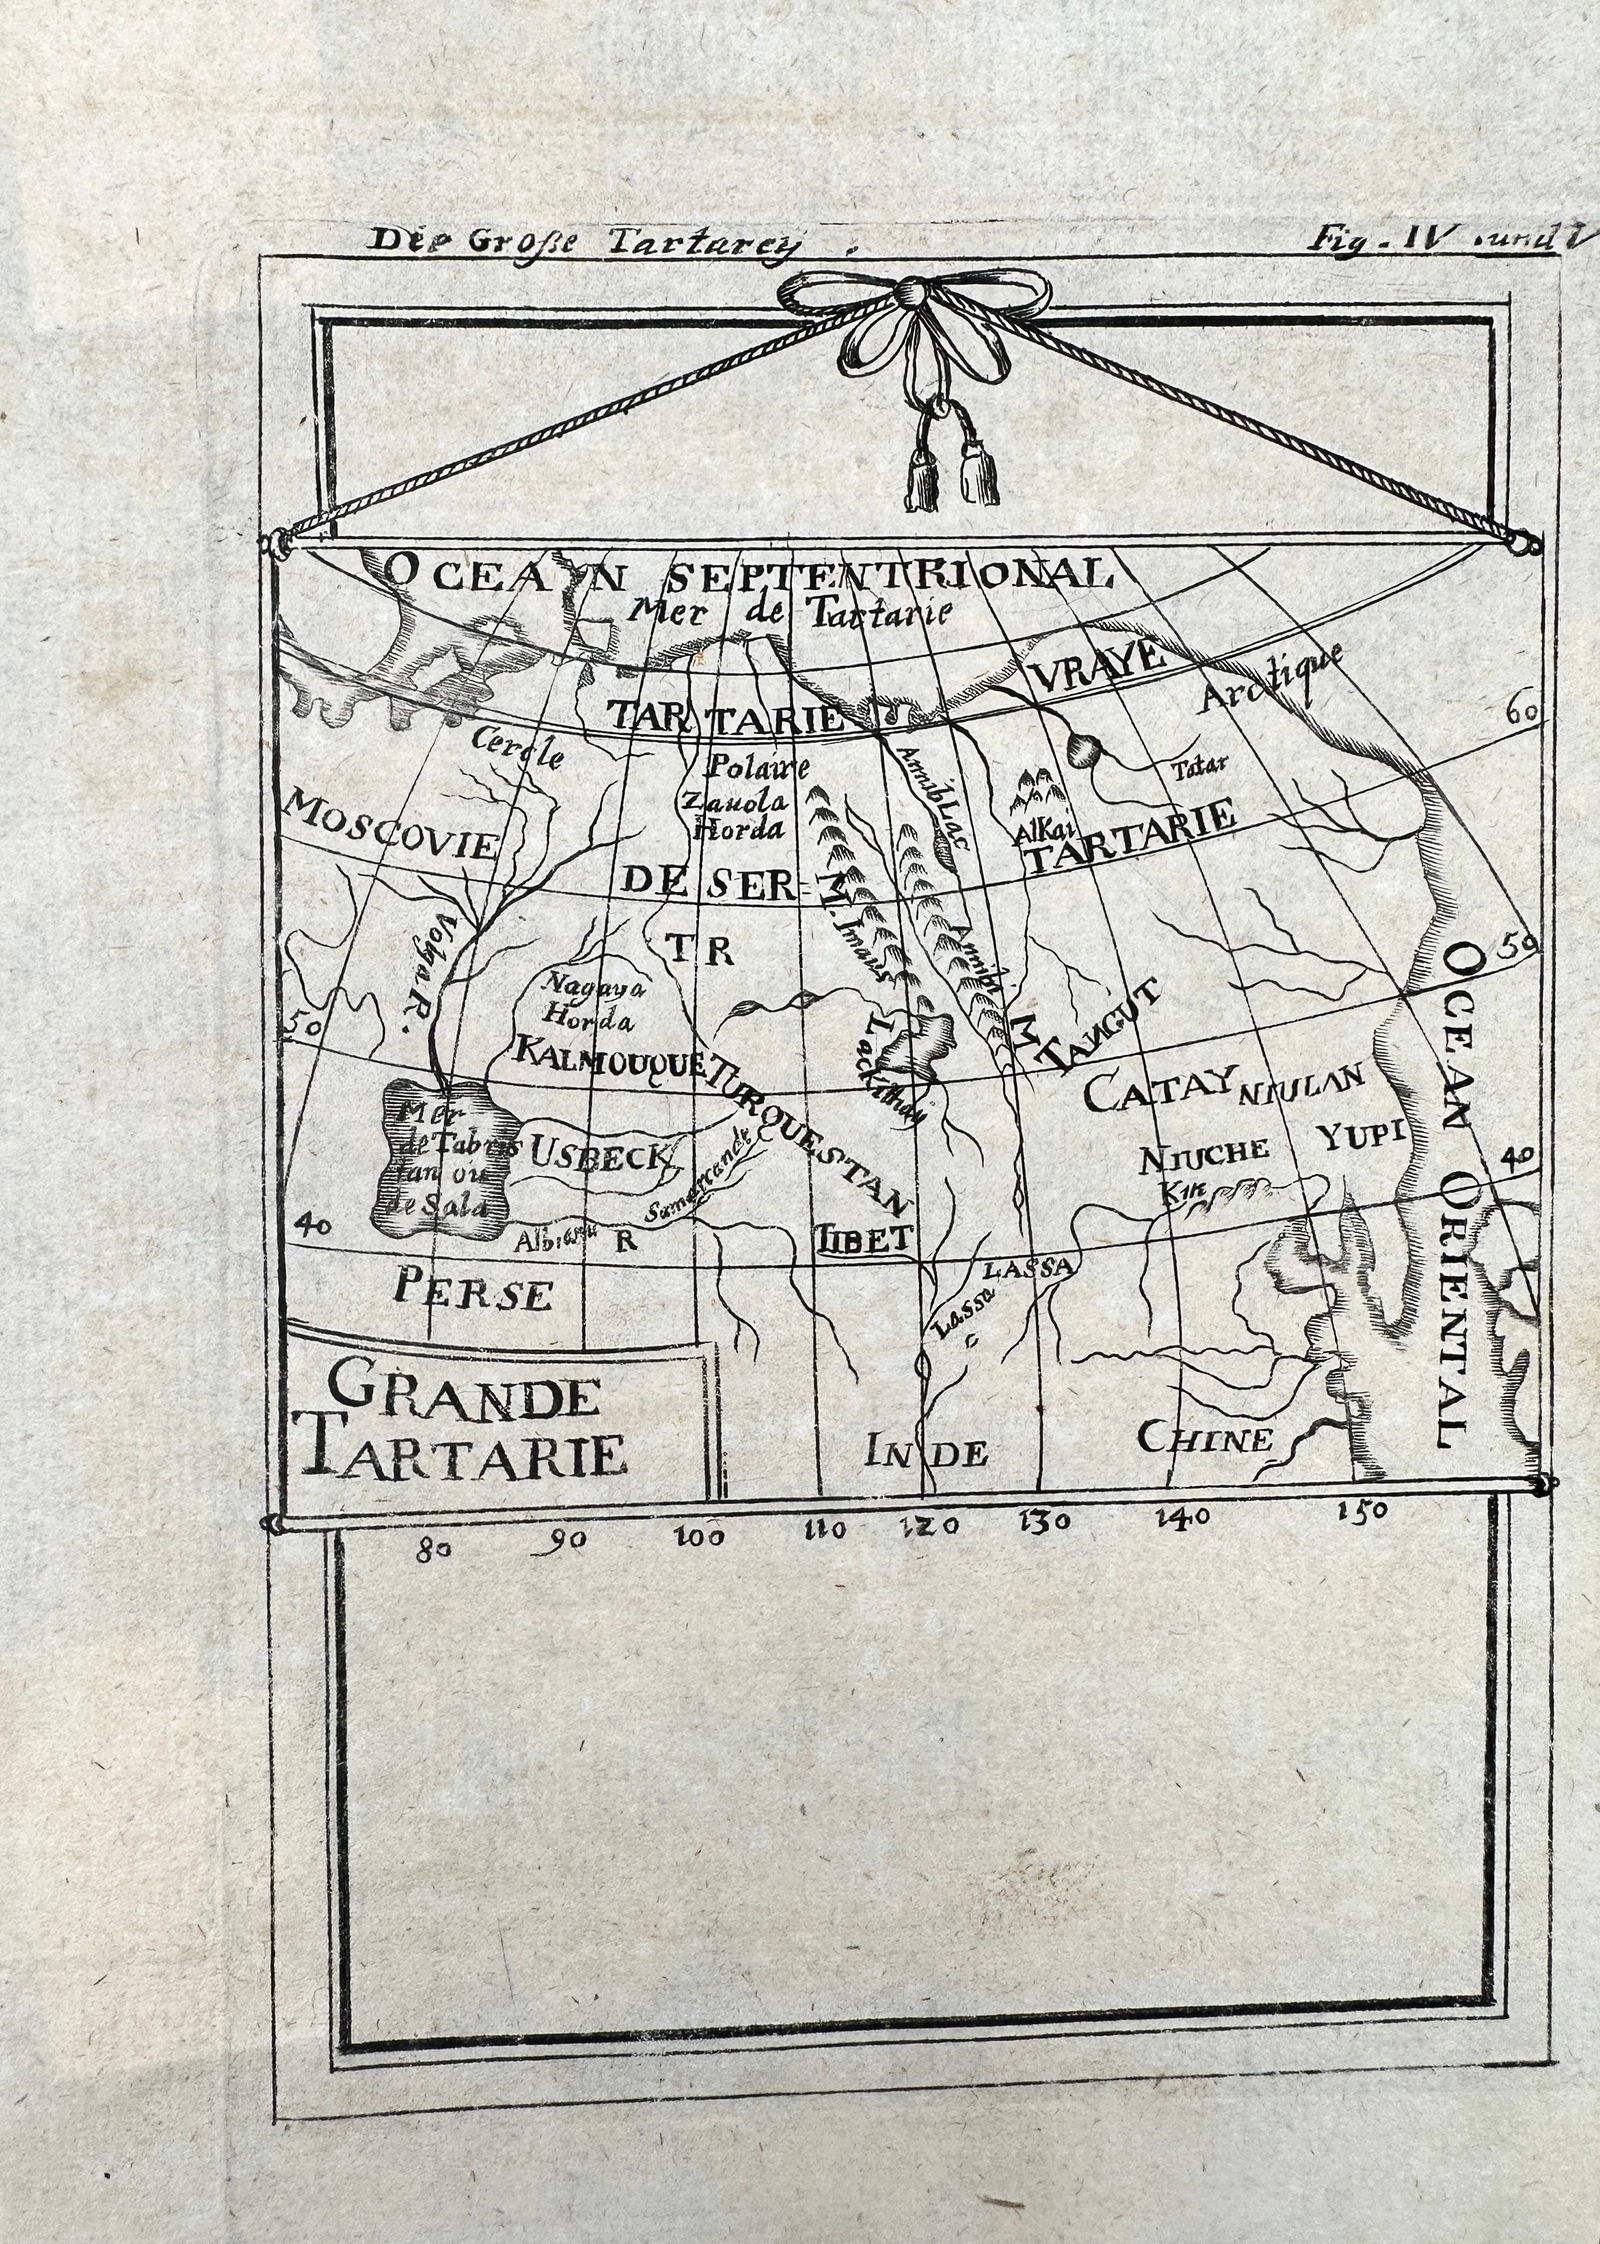 Die Große Tartarey .
Fig. IV und V
OCEAN SEPTENTRIONAL
Mer de Tartarie
VRAYE
Arctique
TARTARIE
60
Cercle
Polaire
Tatar
Zavola
Horda
MOSCOVIE
Lac
Alkai
TARTARIE
DESER
M. Imaus
TR
50
Volga R.
Nagaya
Horda
50
M
TANGUT
KALMOUQUE
TURQUESTAN
Lac Kithay
CATAY
NIULAN
OCEAN ORIENTAL
Mer
de Tabris
tan ou
de Sala
USBECK
NIUCHE
YUPI
40
Kin
Samarcandt
40
Albiamu R
TIBET
LASSA
Lassa
C
PERSE
GRANDE
TARTARIE
INDE
CHINE
80 90 100 110 120 130 140 150